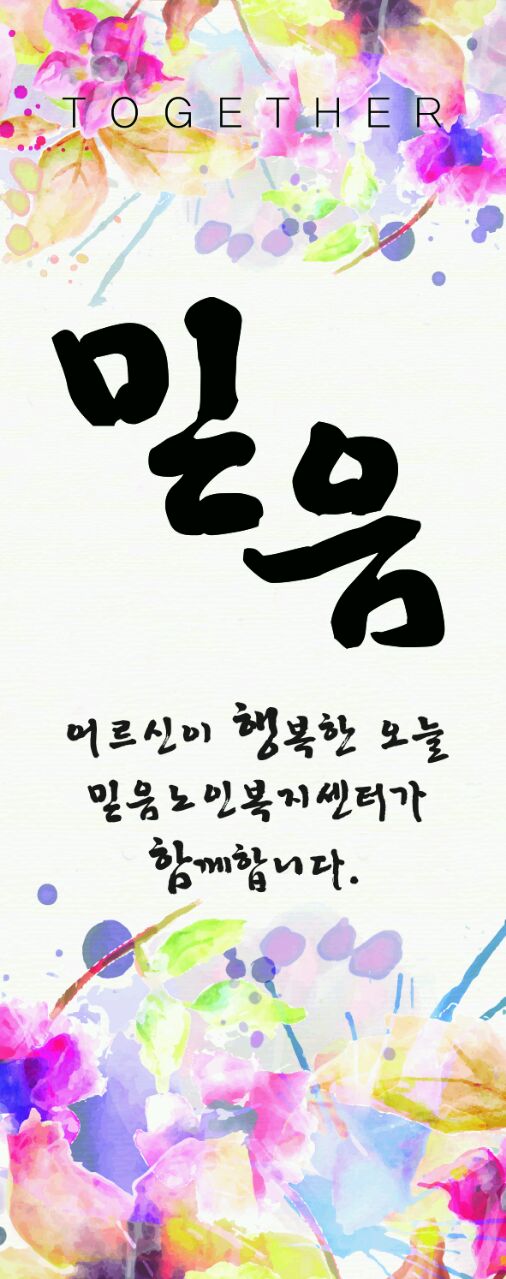 TOGETHER
믿음
어르신이 행복한 오늘
믿음노인복지센터가
함께합니다.